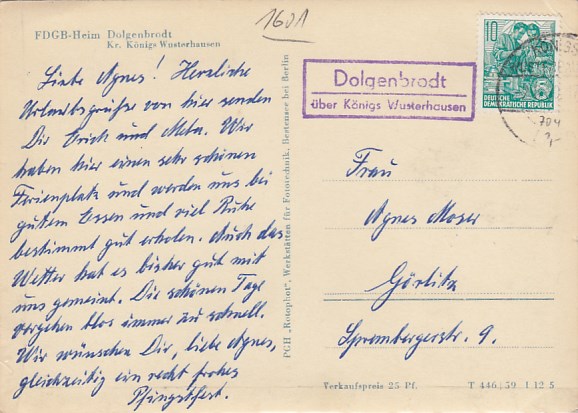 1601
FDGB-Heim Dolgenbrodt
Kr. Königs Wusterhausen
Liebe Agnes! Herzliche
Urlaubsgrüße von hier senden
Dir Erich und Meta. Wir
haben hier einen sehr schönen
Ferienplatz und werden uns bei
gutem Essen und viel Ruhe
bestimmt gut erholen. Auch das
Wetter hat es bisher gut mit
uns gemeint. Die schönen Tage
vergehen blos immer zu schnell.
Wir wünschen Dir, liebe Agnes,
gleichzeitig ein recht frohes
Pfingstfest.
PGH „Rotophot“, Werkstätten für Fototechnik, Bestensee bei Berlin
Dolgenbrodt
über Königs Wusterhausen
10
DEUTSCHE
DEMOKRATISCHE REPUBLIK
KÖNIGS
Frau
Agnes Moser
Görlitz
Sprembergerstr. 9.
Verkaufspreis 25 Pf.
T 446/59 I 12 5